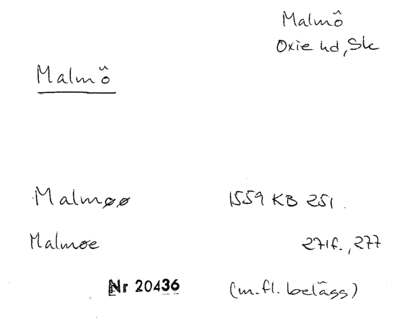 Malmö
Oxie hd, Sk
Malmö
Malmøø 1559 KB 251.
Malmoe 271f., 277
Nr 20436 (m.fl. belägg)